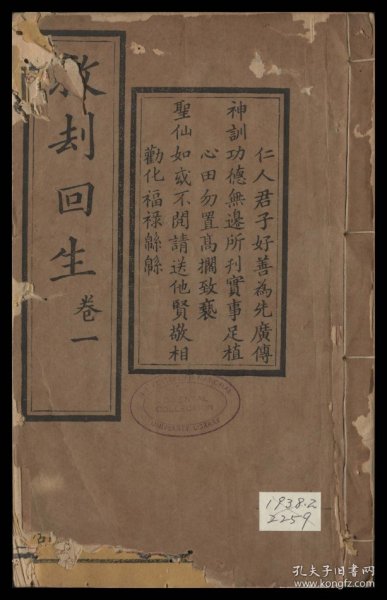 救刦回生
卷一
仁人君子好善為先廣傳
神訓功德無邊所刋實事足植
心田勿置髙擱致褻
聖仙如或不閱請送他賢敬相
勸化福祿緜緜
ORIENTAL
COLLECTION
UNIVERSITY LIBRARY
1938.2
2259
孔夫子旧书网
www.kongfz.com